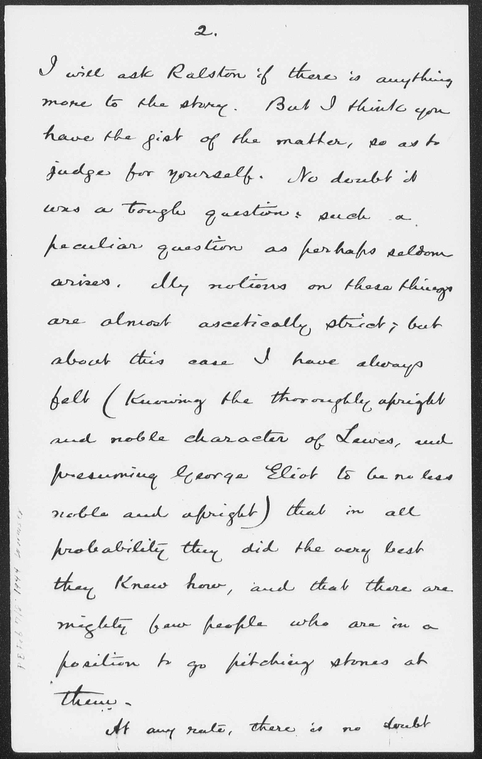 2.
I will ask Ralston if there is anything
more to the story. But I think you
have the gist of the matter, so as to
judge for yourself. No doubt it
was a tough question: such a
peculiar question as perhaps seldom
arises. My notions on these things
are almost ascetically strict; but
about this case I have always
felt (knowing the thoroughly upright
and noble character of Lewes, and
presuming George Eliot to be no less
noble and upright) that in all
probability they did the very best
they knew how, and that there are
mighty few people who are in a
position to go pitching stones at
them.
At any rate, there is no doubt